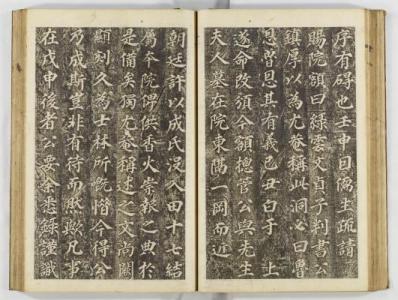 序有碍也壬申因儒生疏請
賜院額曰綠雲文貞子判書公
鎮厚以為尤菴稱此洞必曰魯
恩魯恩其有義己丑白于上
遂命改須今額揔管公與先生
夫人墓在院東隅一岡而近
朝廷許以成氏沒入田十七結
屬本院俾供香火崇報之典於
是備矣獨尤菴稱述之文尚闕
顯刻久為士林所慨惜今得公
乃成斯皇非有待而然歟凡事
在戊申後者公要余悉錄謹識